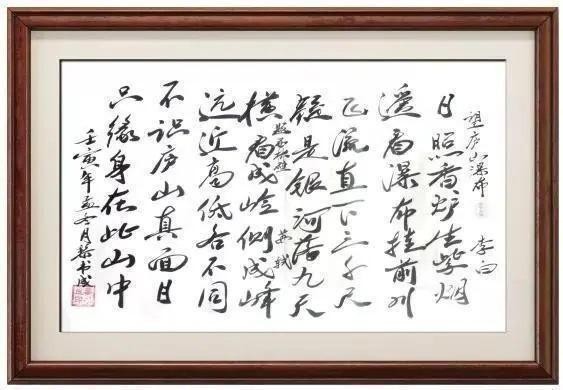 望庐山瀑布 李白
日照香炉生紫烟
遥看瀑布挂前川
飞流直下三千尺
疑是银河落九天
题西林壁 苏轼
横看成岭侧成峰
远近高低各不同
不识庐山真面目
只缘身在此山中
壬寅年孟冬月书成